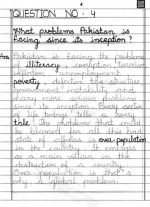 4
QUESTION NO: 4
What problems Pakistan is
facing since its inception?
Ans Pakistan is facing the problems
of illiteracy, corruption, terrorism
inflation, unemployment,
poverty, defective tax structure
government instability and
many more serious problems
since its inception. Every sector
of life today tells a sorry
tale. The problem that could
be blamed for all this bad
state of affairs is over-population
in the country. It enters
as a main villain in the
destruction of a country.
Over-population is that's
why a global problem.